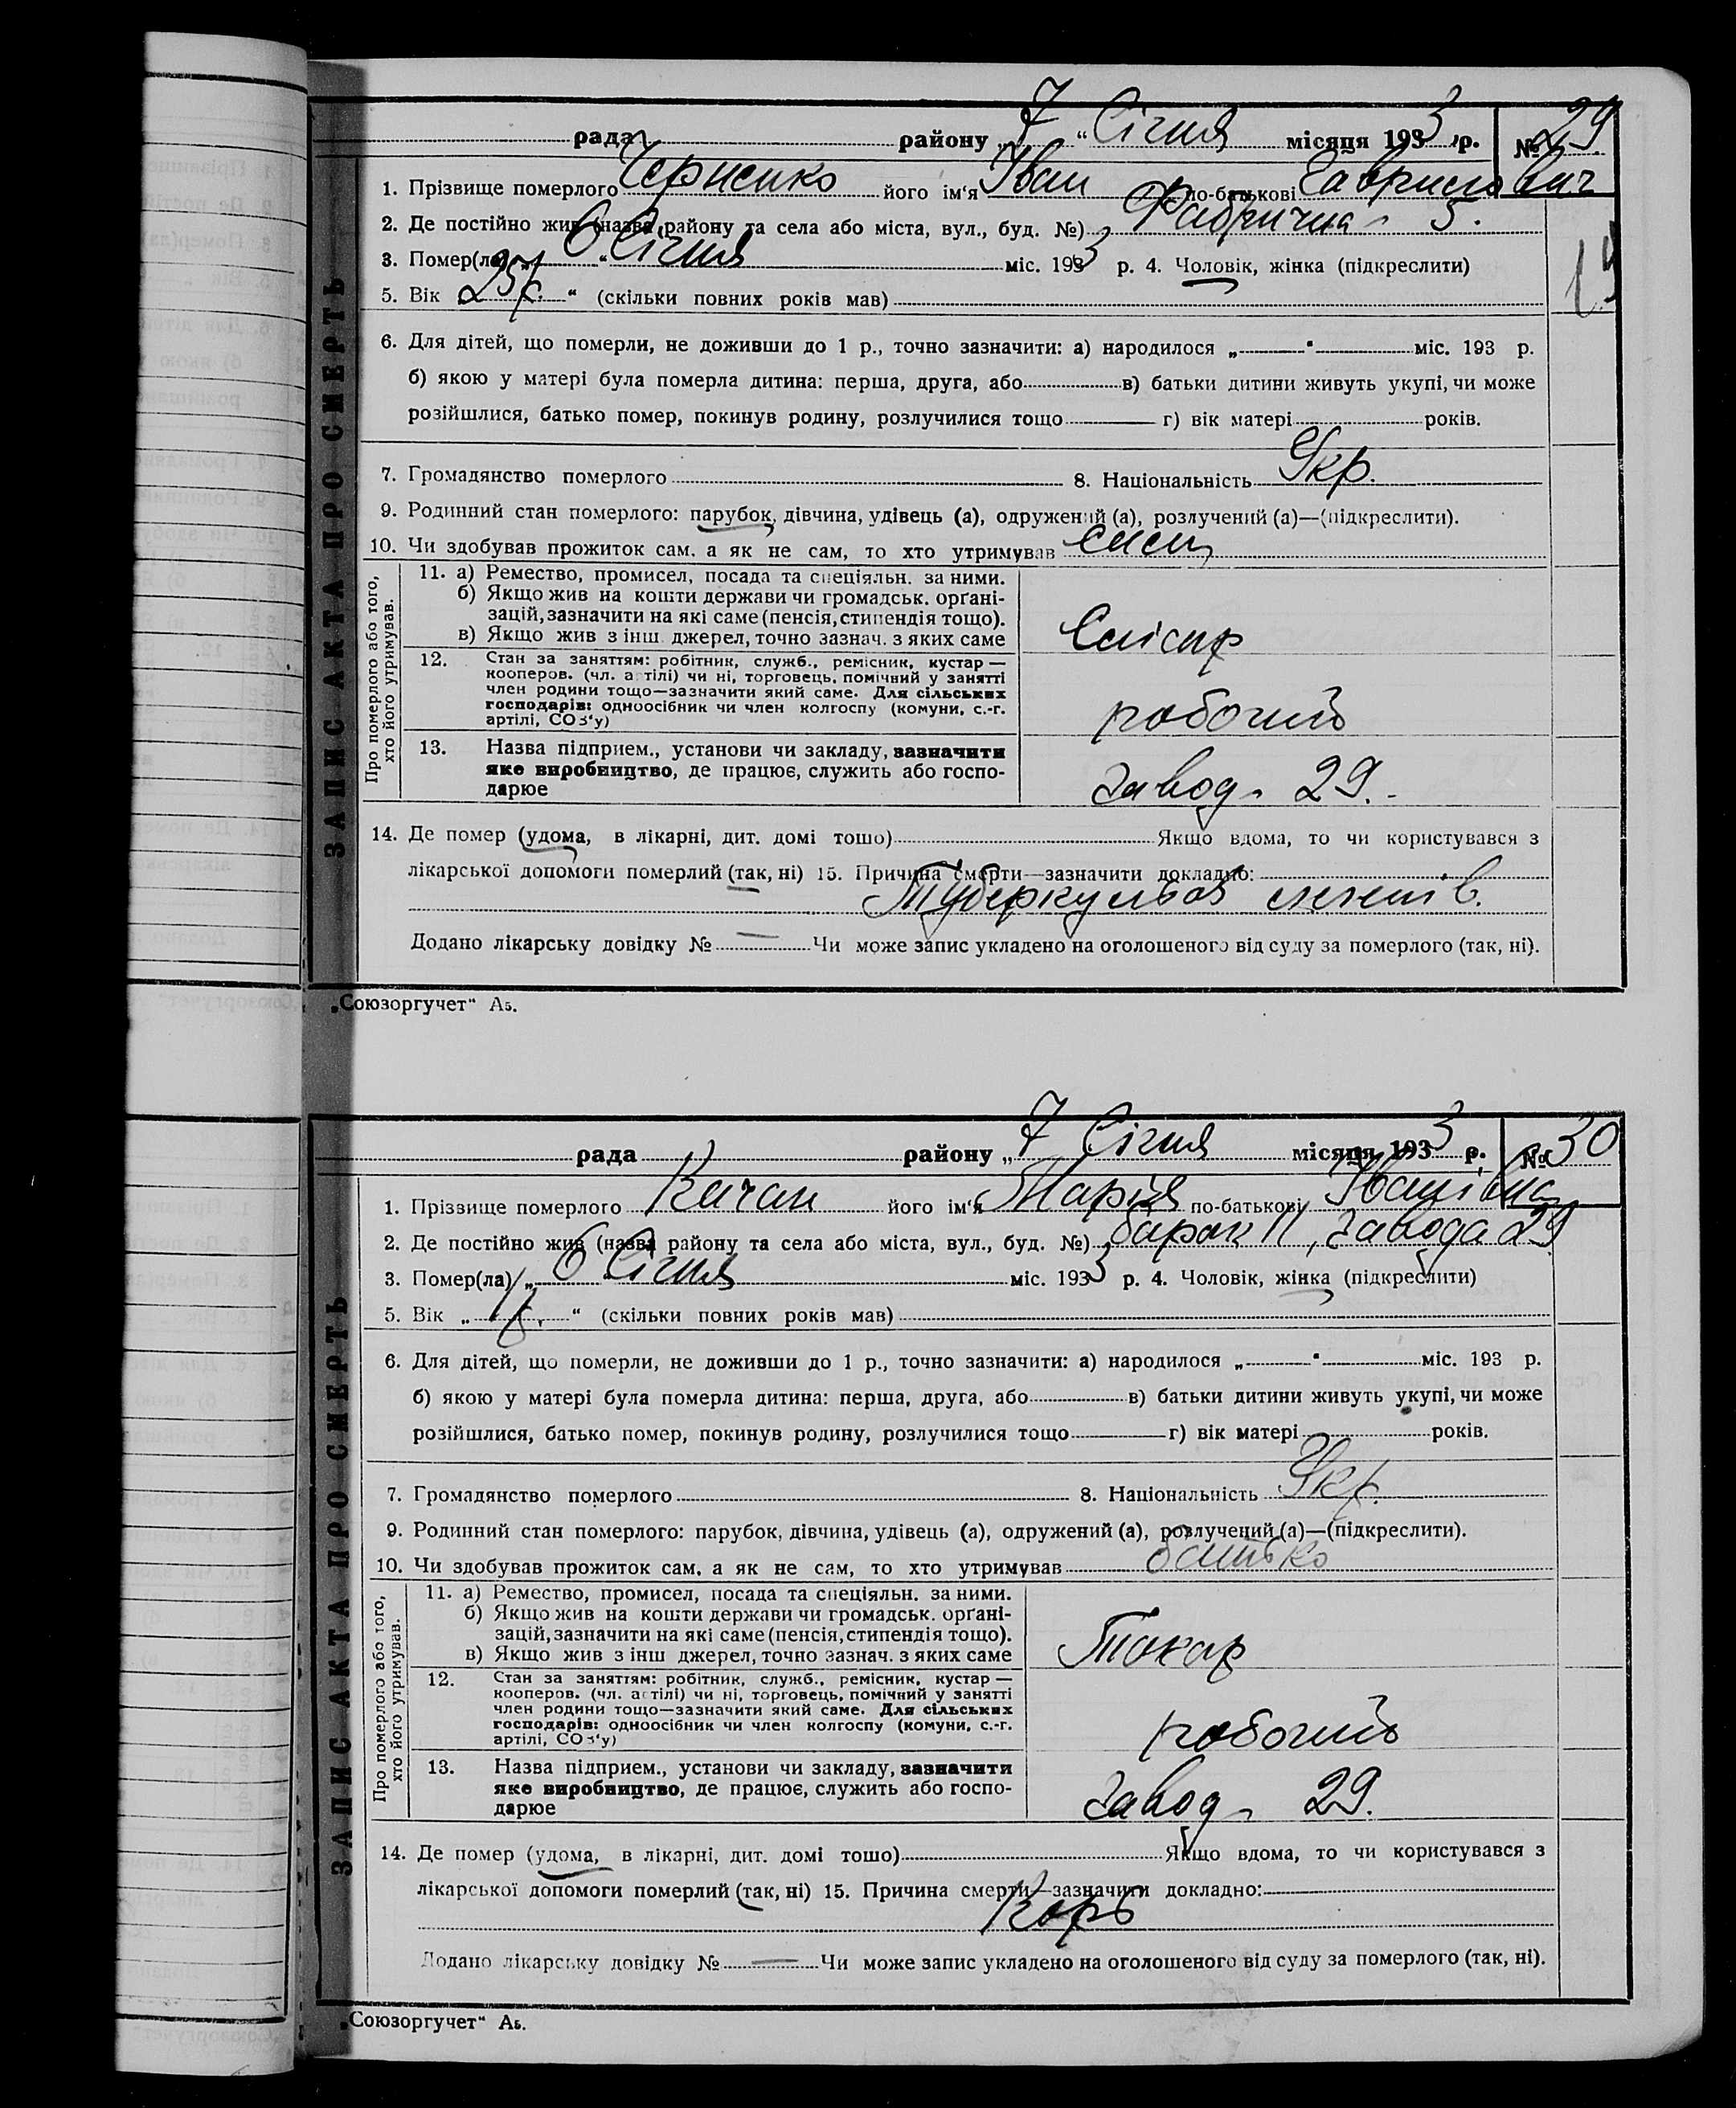 рада району „7“ Січня місяця 1933 р. № 29
ЗАПИС АКТА ПРО СМЕРТЬ
1. Прізвище померлого Черненко його ім‘я Іван по-батькові Гаврилович
2. Де постійно жив (назва району та села або міста, вул., буд. №) Фабрична 5.
3. Помер(ла) „6“ Січня міс. 1933 р. 4. Чоловік, жінка (підкреслити)
5. Вік 25 р. “ (скільки повних років мав)
6. Для дітей, що померли, не доживши до 1 р., точно зазначити: а) народилося „ “ міс. 193 р.
б) якою у матері була померла дитина: перша, друга, або в) батьки дитини живуть укупі, чи може
розійшлися, батько помер, покинув родину, розлучилися тощо г) вік матері років.
7. Громадянство померлого 8. Національність Укр.
9. Родинний стан померлого: парубок, дівчина, удівець (а), одружений (а), розлучений (а)—(підкреслити).
10. Чи здобував прожиток сам, а як не сам, то хто утримував
Про померлого або того, хто його утримував.
11. а) Ремество, промисел, посада та спеціяльн. за ними.
б) Якщо жив на кошти держави чи громадськ. орґані-
зацій, зазначити на які саме (пенсія, стипендія тощо).
в) Якщо жив з інш. джерел, точно зазнач. з яких саме
Слісар
12. Стан за заняттям: робітник, служб., ремісник, кустар —
кооперов. (чл. артілі) чи ні, торговець, помічний у занятті
член родини тощо—зазначити який саме. Для сільських
господарів: одноосібник чи член колгоспу (комуни, с.-г.
артілі, СОЗ‘у)
робочий
13. Назва підприєм., установи чи закладу, зазначити
яке виробництво, де працює, служить або госпо-
дарює
завод 29.
14. Де помер (удома, в лікарні, дит. домі тощо) Якщо вдома, то чи користувався з
лікарської допомоги померлий (так, ні) 15. Причина смерти—зазначити докладно:
Туберкульоз легенів.
Додано лікарську довідку № — Чи може запис укладено на оголошеного від суду за померлого (так, ні).
„Союзоргучет“ А5.
рада району „7 Січня місяця 1933 р. № 30
ЗАПИС АКТА ПРО СМЕРТЬ
1. Прізвище померлого Качан його ім‘я Марія по-батькові Іванівна
2. Де постійно жив (назва району та села або міста, вул., буд. №) барак 11, завода 29
3. Помер(ла) „6 Січня міс. 1933 р. 4. Чоловік, жінка (підкреслити)
5. Вік „ “ (скільки повних років мав)
6. Для дітей, що померли, не доживши до 1 р., точно зазначити: а) народилося „ “ міс. 193 р.
б) якою у матері була померла дитина: перша, друга, або в) батьки дитини живуть укупі, чи може
розійшлися, батько помер, покинув родину, розлучилися тощо г) вік матері років.
7. Громадянство померлого 8. Національність Укр.
9. Родинний стан померлого: парубок, дівчина, удівець (а), одружений (а), розлучений (а)—(підкреслити).
10. Чи здобував прожиток сам, а як не сам, то хто утримував батько
Про померлого або того, хто його утримував.
11. а) Ремество, промисел, посада та спеціяльн. за ними.
б) Якщо жив на кошти держави чи громадськ. орґані-
зацій, зазначити на які саме (пенсія, стипендія тощо).
в) Якщо жив з інш джерел, точно зазнач. з яких саме
Токар
12. Стан за заняттям: робітник, служб., ремісник, кустар —
кооперов. (чл. артілі) чи ні, торговець, помічний у занятті
член родини тощо—зазначити який саме. Для сільських
господарів: одноосібник чи член колгоспу (комуни, с.-г.
артілі, СОЗ‘у)
робочий
13. Назва підприєм., установи чи закладу, зазначити
яке виробництво, де працює, служить або госпо-
дарює
завод 29.
14. Де помер (удома, в лікарні, дит. домі тощо) Якщо вдома, то чи користувався з
лікарської допомоги померлий (так, ні) 15. Причина смерти—зазначити докладно:
Корь
Додано лікарську довідку № — Чи може запис укладено на оголошеного від суду за померлого (так, ні).
„Союзоргучет“ А5.